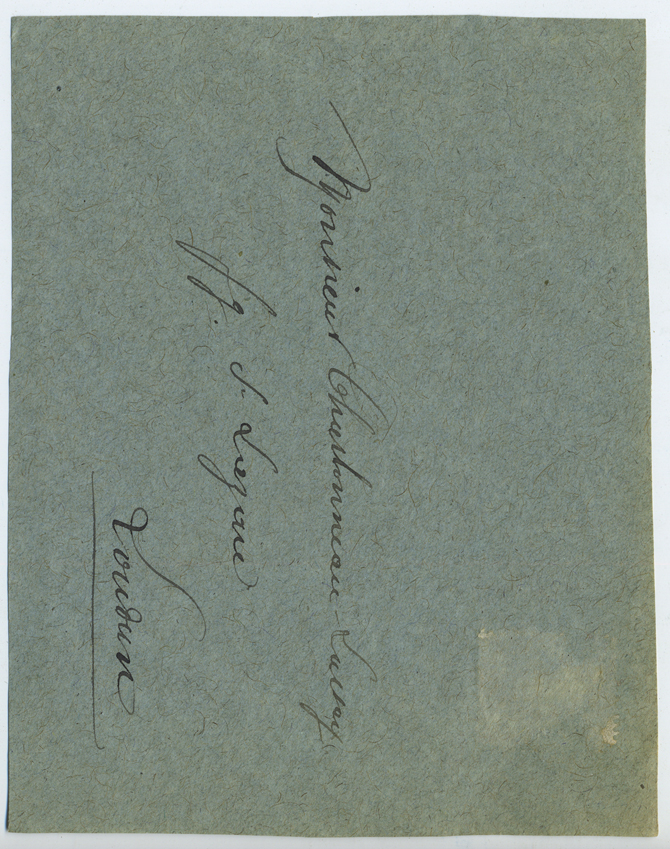 Monsieur Charbonneau-Lassay
fg. S. Lazare
Loudun